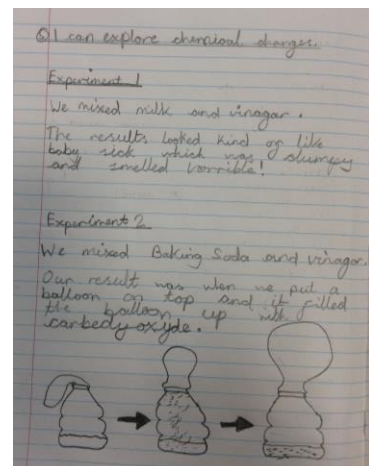 I can explore chemical changes.
Experiment 1
We mixed milk and vinagar.
The results looked kind of like
baby sick which was slumpy
and smelled horrible!
Experiment 2
We mixed Baking Soda and vinagar.
Our result was when we put a
balloon on top and it filled
the balloon up with
carbedy oxyde.